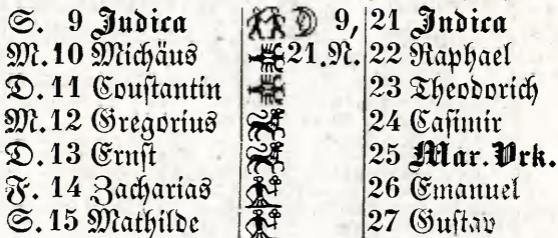 S. 9 Judica 9, 21 Judica
M. 10 Michäus 21.N. 22 Raphael
D. 11 Constantin 23 Theodorich
M. 12 Gregorius 24 Casimir
D. 13 Ernst 25 Mar. Vrk.
F. 14 Zacharias 26 Emanuel
S. 15 Mathilde 27 Gustav